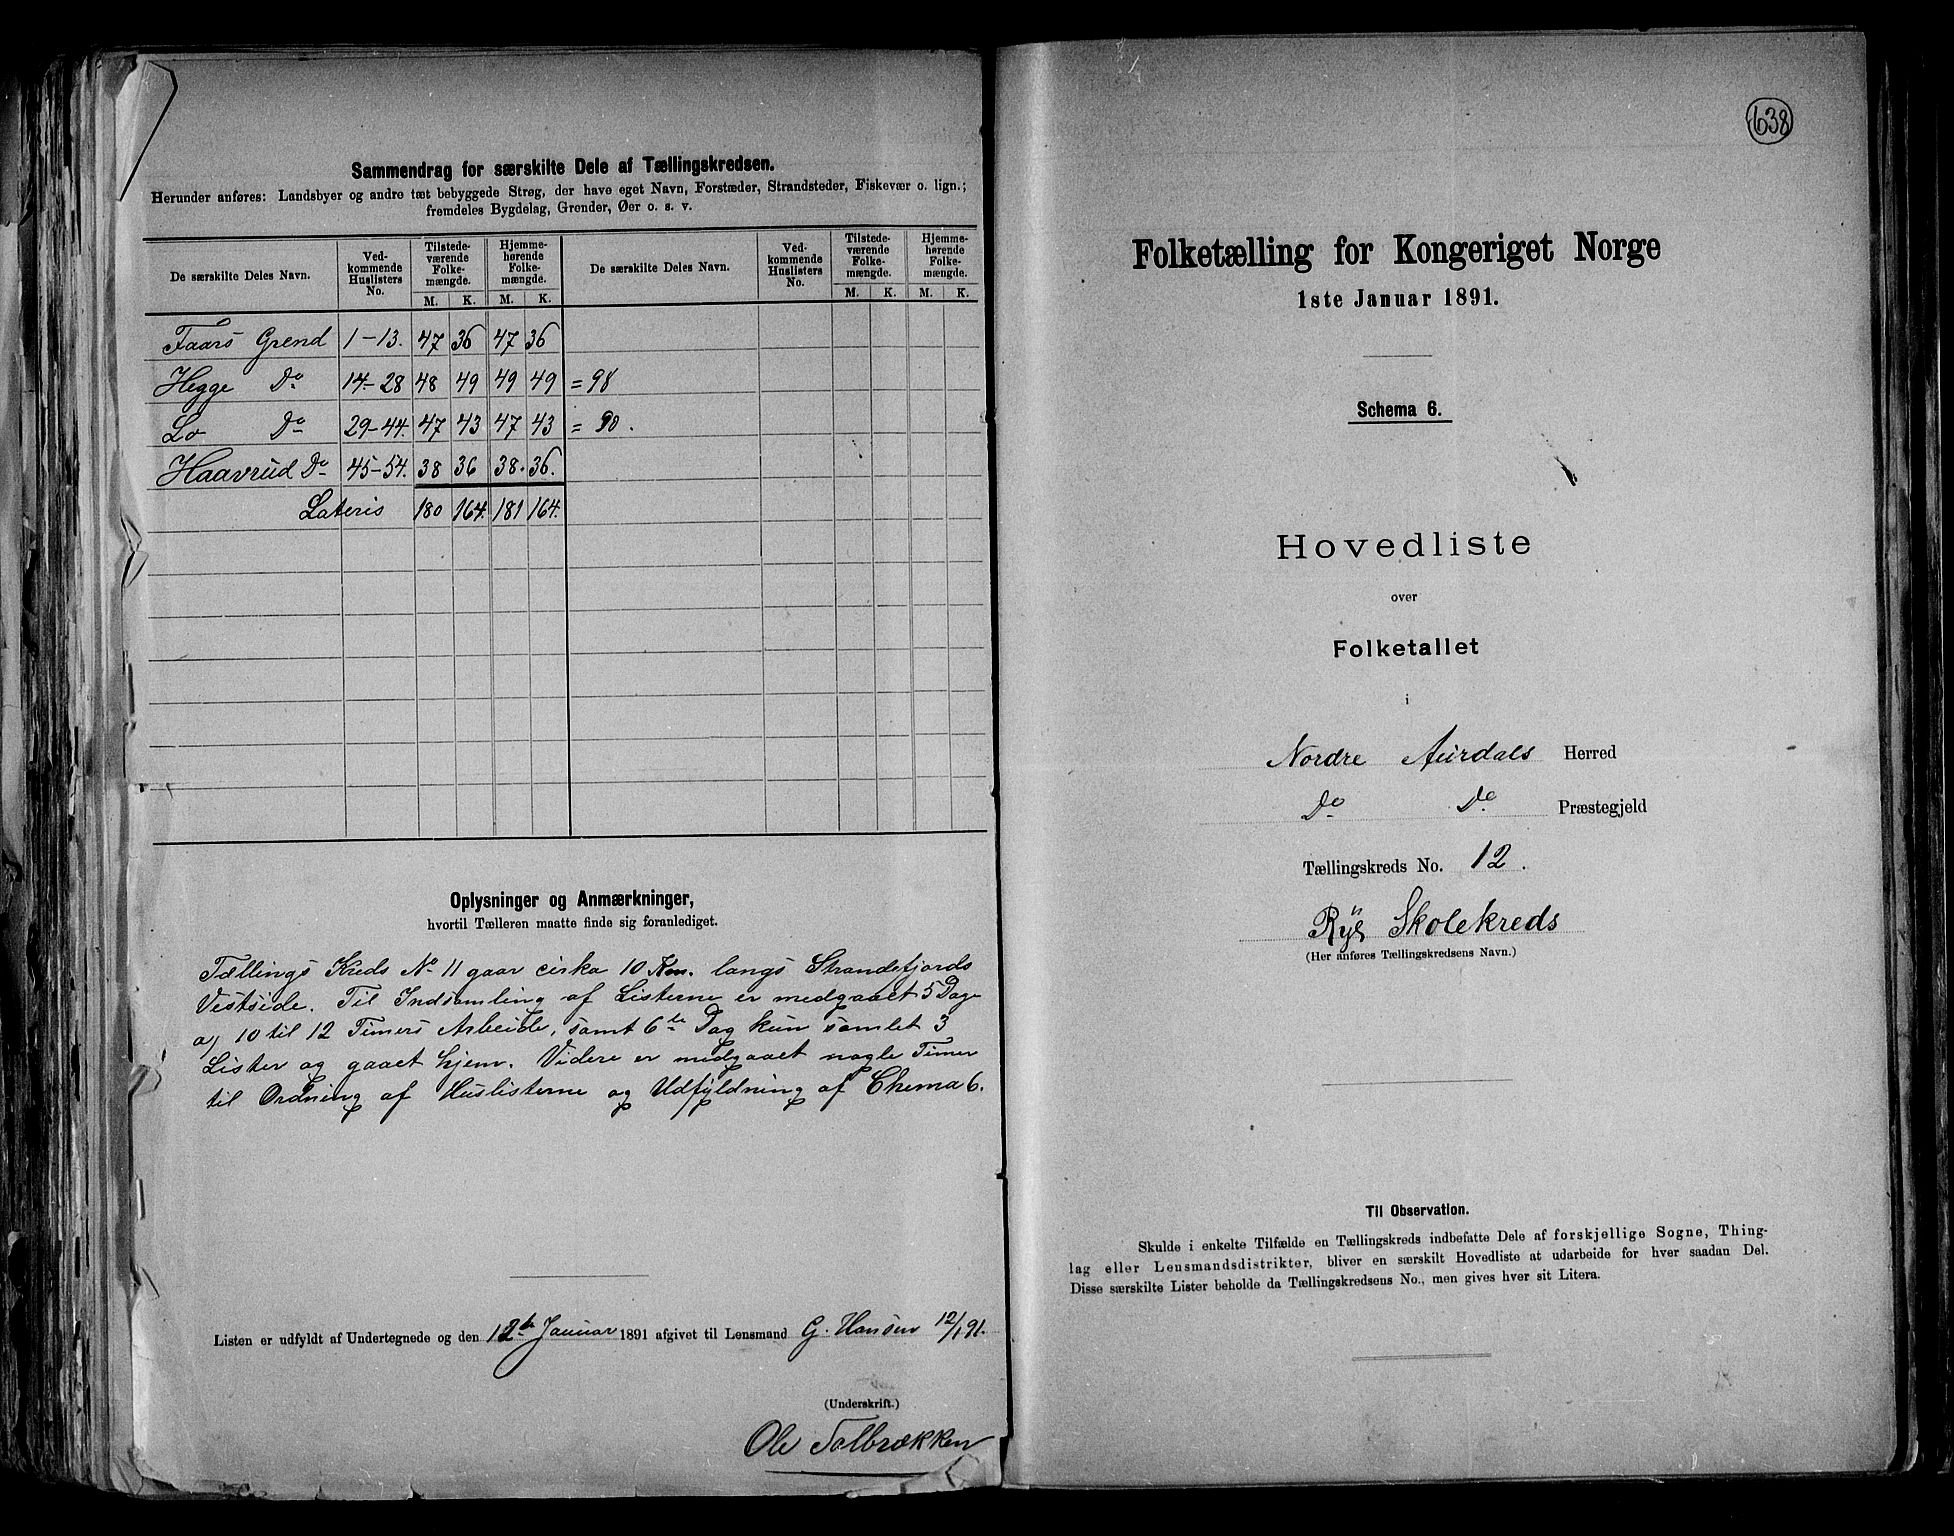 Sammendrag for særskilte Dele af Tællingskredsen.
Herunder anføres: Landsbyer og andre tæt bebyggede Strøg, der have eget Navn, Forstæder, Strandsteder, Fiskevær o. lign.;
fremdeles Bygdelag, Grender, Øer o. s. v.
De særskilte Deles Navn. Ved-kommende Huslisters No. Tilstede-værende Folke-mængde. Hjemme-hørende Folke-mængde. De særskilte Deles Navn. Ved-kommende Huslisters No. Tilstede-værende Folke-mængde. Hjemme-hørende Folke-mængde.
M. K. M. K. M. K. M. K.
Faars Grend 1-13. 47 36 47 36
Hegge Do 14-28 48 49 49 49 = 98
Lo Do 29-44. 47 43 47 43 = 90.
Haavrud Do 45-54. 38 36 38. 36.
Lateris 180 164. 181 164.
Oplysninger og Anmærkninger,
hvortil Tælleren maatte finde sig foranlediget.
Tællings Kreds No 11 gaar cirka 10 Km. langs Strandefjords
Vestside. Til Indsamling af Listerne er medgaaet 5 Dage
a, 10 til 12 Timers Arbeide, samt 6te Dag kun samlet 3
Lister og gaaet hjem. Videre er medgaaet nogle Timer
til Ordning af Huslisterne og Udfyldning af Chema 6.
Listen er udfyldt af Undertegnede og den 12te Januar 1891 afgivet til Lensmand G. Hansen 12/1 91.
(Underskrift.)
Ole Tolbrækken
638
Folketælling for Kongeriget Norge
1ste Januar 1891.
Schema 6.
Hovedliste
over
Folketallet
i
Nordre Aurdals Herred
Do Do Præstegjeld
Tællingskreds No. 12.
Skolekreds
(Her anføres Tællingskredsens Navn.)
Til Observation.
Skulde i enkelte Tilfælde en Tællingskreds indbefatte Dele af forskjellige Sogne, Thing-
lag eller Lensmandsdistrikter, bliver en særskilt Hovedliste at udarbeide for hver saadan Del.
Disse særskilte Lister beholde da Tællingskredsens No., men gives hver sit Litera.